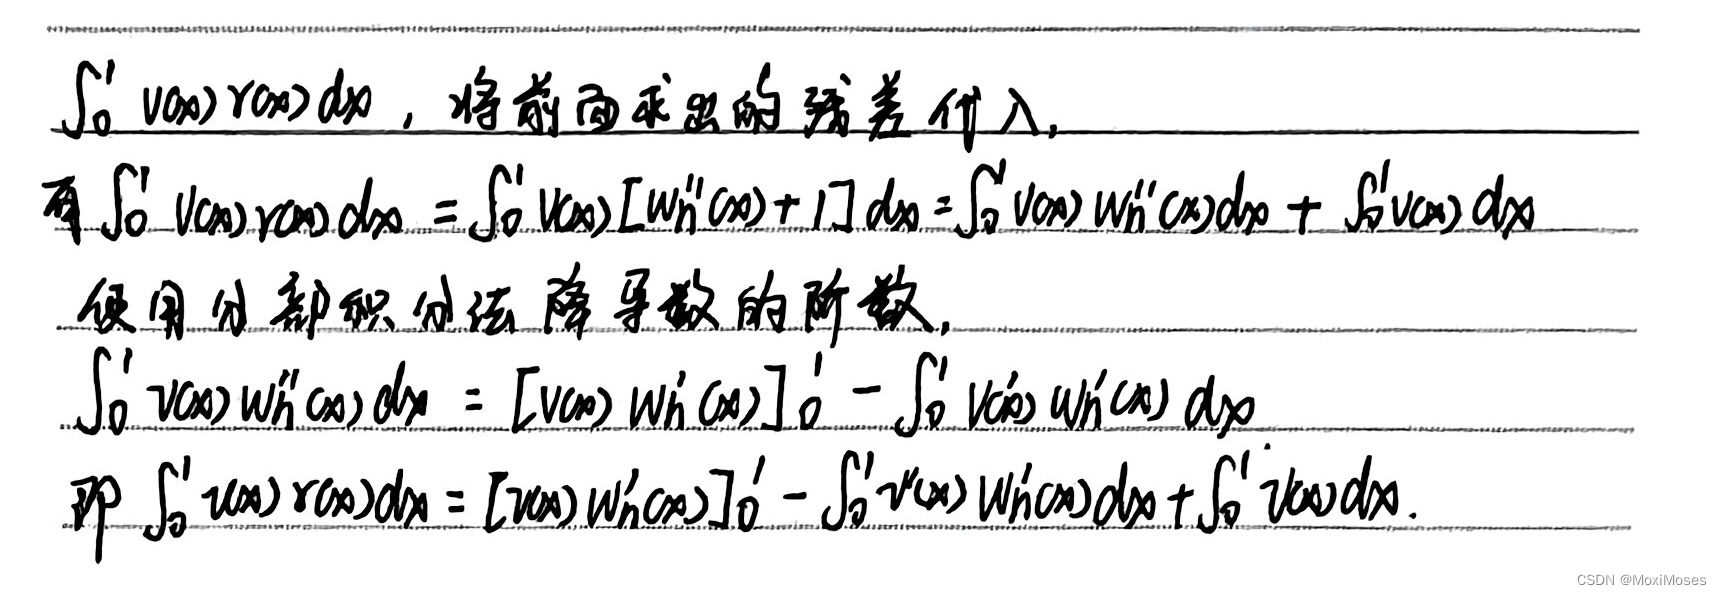 ∫₀¹ v(x) r(x) dx，将前面求出的残差代入，
有 ∫₀¹ v(x) r(x) dx = ∫₀¹ v(x) [wₕ''(x) + 1] dx = ∫₀¹ v(x) wₕ''(x) dx + ∫₀¹ v(x) dx
使用分部积分法降导数的阶数，
∫₀¹ v(x) wₕ''(x) dx = [v(x) wₕ'(x)]₀¹ - ∫₀¹ v'(x) wₕ'(x) dx
即 ∫₀¹ v(x) r(x) dx = [v(x) wₕ'(x)]₀¹ - ∫₀¹ v'(x) wₕ'(x) dx + ∫₀¹ v(x) dx.
CSDN @MoxiMoses